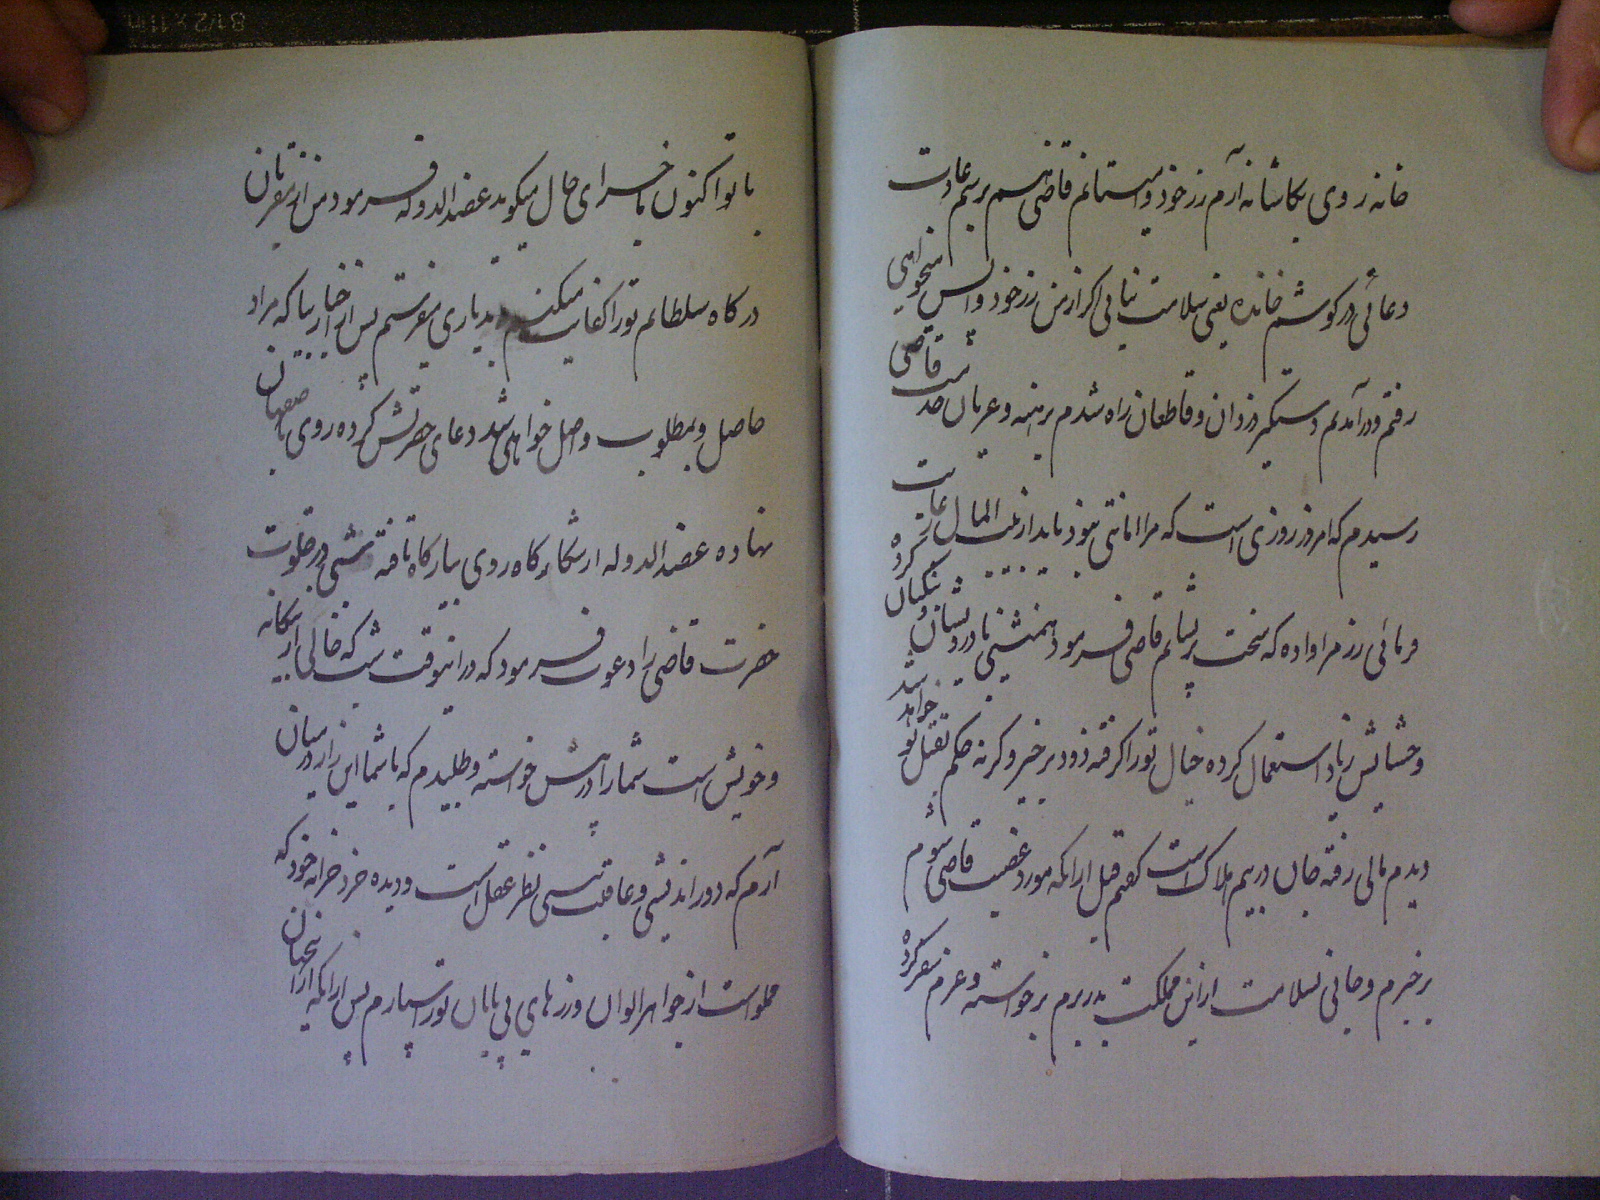 خانه روی بکاشانه آرم زر خود واستانم قاضی هم برسم عادت
دعائی در گوشم خوانده یعنی سلامت نیابی اگر از من زر خود واپس نخواهی
رفتم و در آمدنم دستگیر دزدان و قاطعان راه شدم برهنه و عریان خدمت قاضی
رسیدم که امروز روزیست که مرا امانتی بود باید از بیت المال عنایت
فرمائی زر مرا واده که سخت پریشانم قاضی فرمود همنشینی با درویشان و بنگیان کرده
و حشایش زیاد استعمال کرده خیال تو را گرفته زود برخیز و گرنه حکم بقتل تو خواهد شد
دیدم مالی رفته جان در بیم هلاک است گفتم قبل از آنکه مورد غضب قاضی شوم
برخیزم و جانی بسلامت از این مملکت بدر برم برخواسته و عزم سفر کرده
با تو اکنون ماجرای حال میگوید عضد الدوله فرمود من از مقربان
درگاه سلطانم تو را کفایت میکنم پس از
حاصل و بمطلوب واصل خواهی شد دعای حضرتش کرده روی باصفهان
نهاده عضد الدوله از شکارگاه روی ببارگاه تافته شبی در خلوت
حضرت قاضی را دعوت فرمود که در اینوقت شب که خالی از بیگانه
و خویش است شما را در پیش خواسته و طلبیدم که با شما این راز در میان
آرم که دور اندیشی و عاقبت بینی نظر عقل است و دیده خرد خزانه خود که
مملو است از جواهر الوان و زرهای بی پایان بتو سپارم پس از آنکه از این جهان